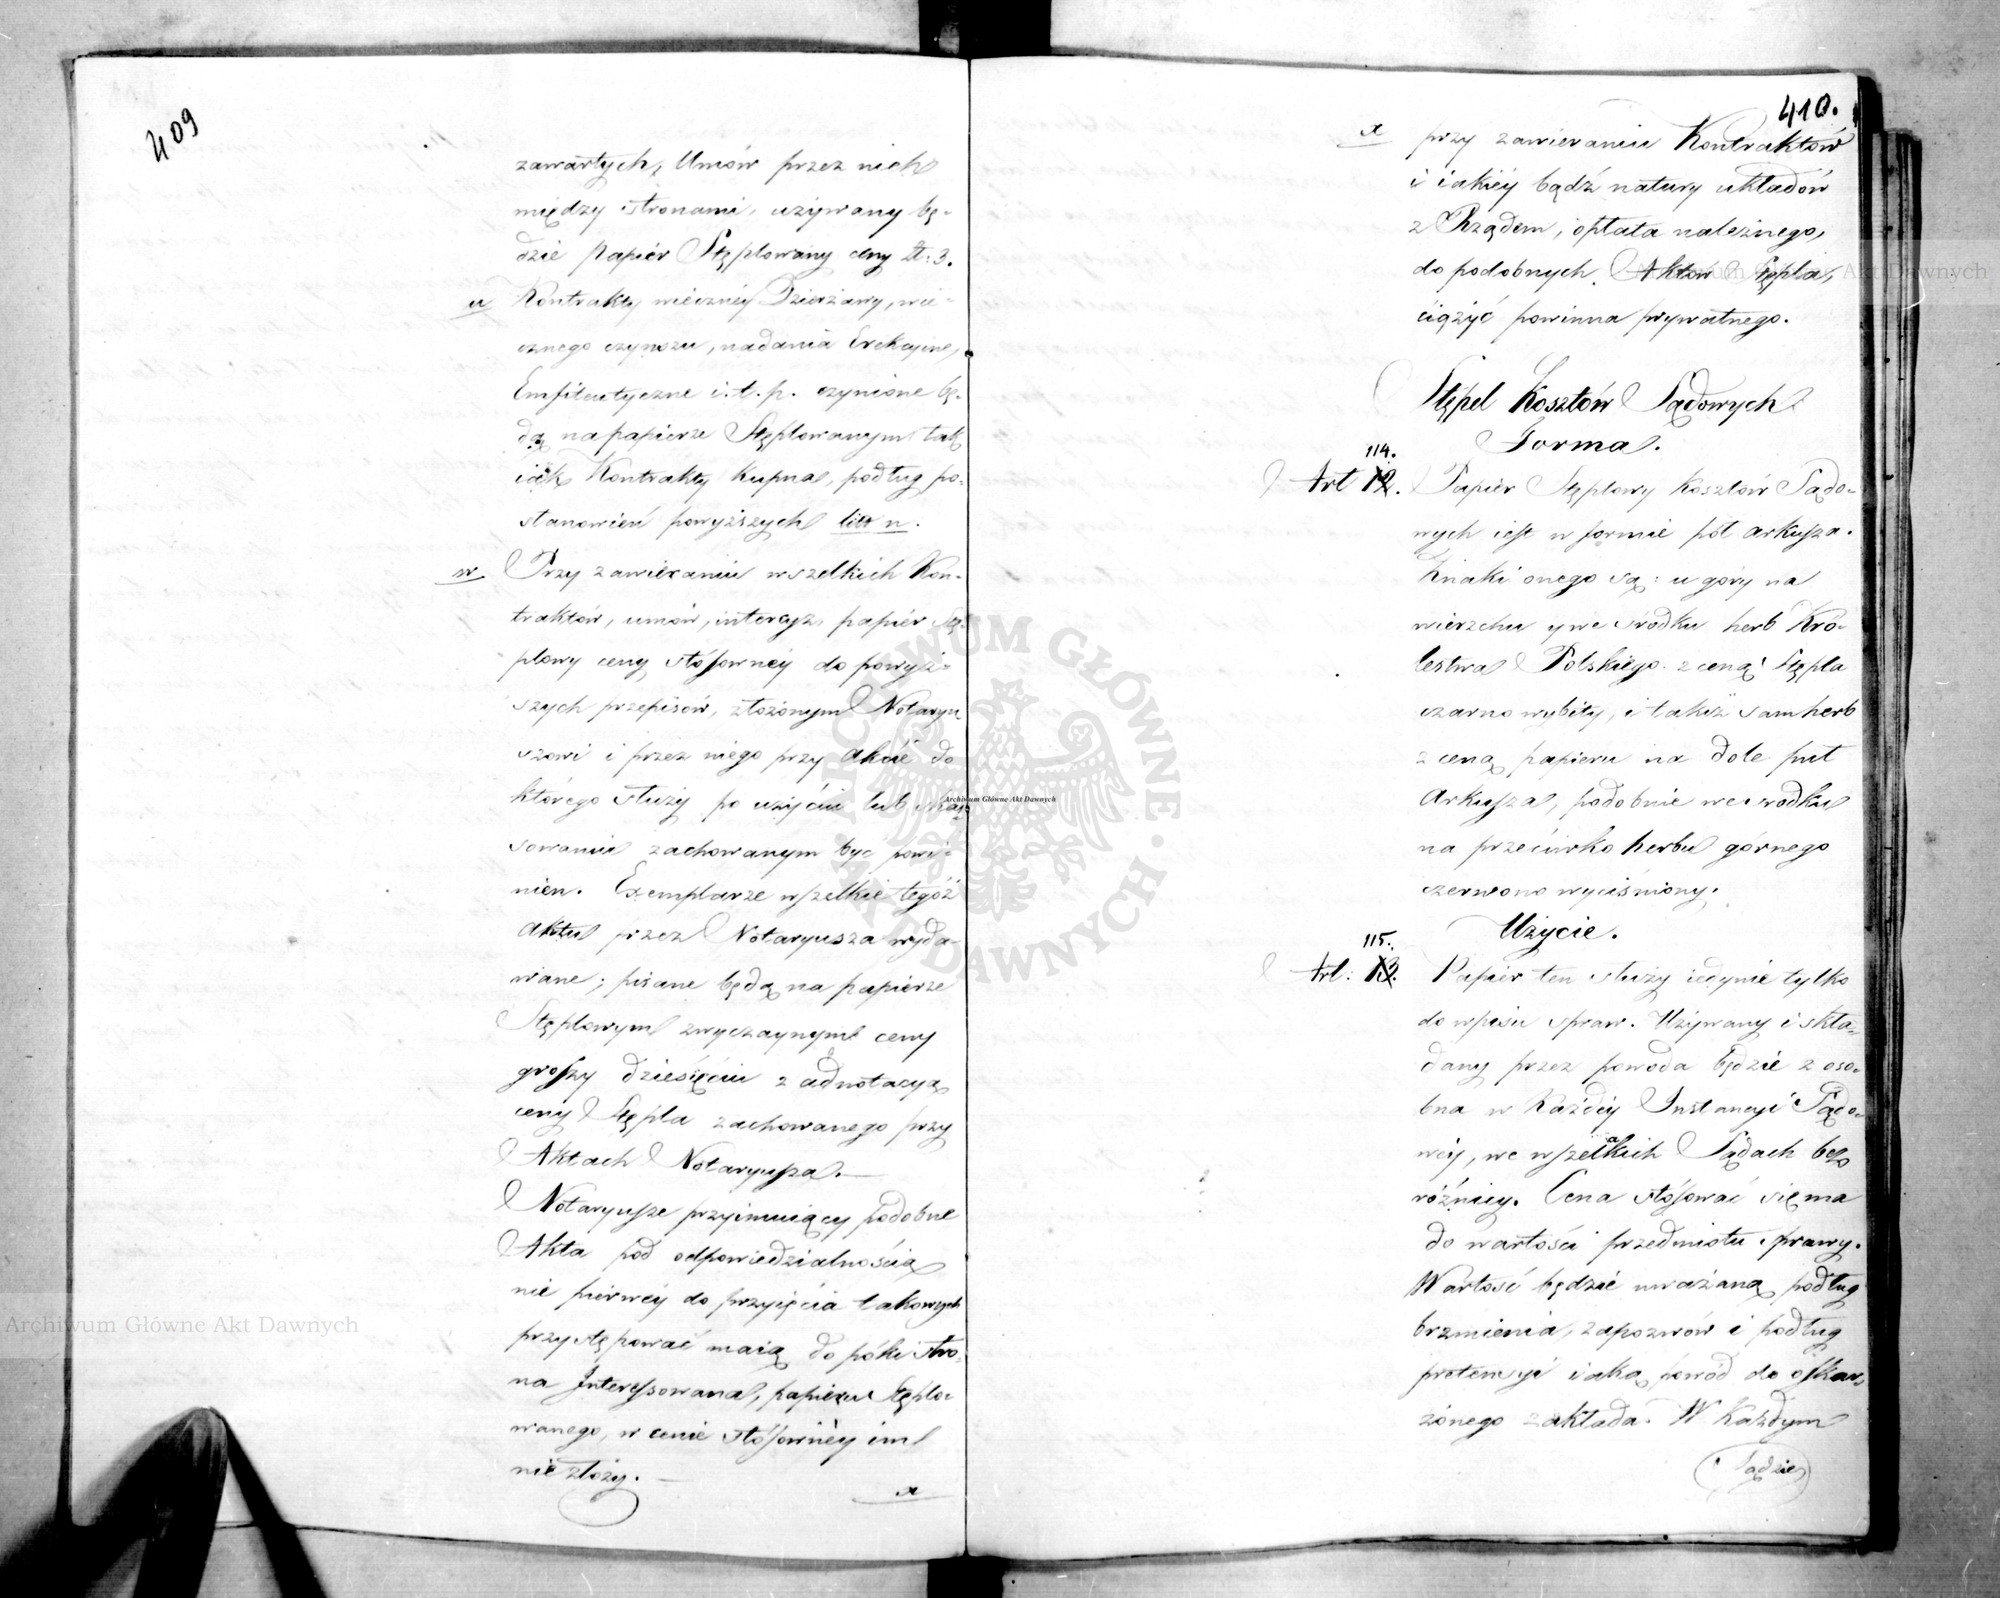 409
zawartych, Umów przez nich
między stronami, używany bę-
dzie papiér Stęplowany ceny Zł: 3.
u Kontrakty wiecznéy Dzierżawy, wie-
cznego czynszu, nadania Erekcyine,
Emfiteutyczne i. t. p. czynione bę-
dą na papierze Stęplowanym tak
iak Kontrakty Kupna, podług po-
stanowień powyższych litt n.
w Przy zawieraniu wszelkich Kon-
traktów, umów, intercyz, papiér Stę-
plowy ceny stósownéy do powyż-
szych przepisów, złożonym Notaryu
szowi i przez niego przy akcie do
którego służy po użyciu lub ska-
sowaniu zachowanym być powi-
nien. Exemplarze wszelkie tegóż
aktu przez Notaryusza wyda-
wane; pisane będą na papierze
Stęplowym zwyczaynym ceny
groszy dziesięciu z adnotacyą
ceny Stępla zachowanego przy
Aktach Notaryusza.—
Notaryusze przyimuiący podobne
Akta pod odpowiedzialnością
nie pierwéy do przyięcia takowych
przystępować maią do póki stro-
na Interessowana, papieru Stęplo-
wanego, w cenie stósownéy im
nie złoży.—
x
410.
x przy zawieraniu Kontraktów
i iakiéy bądź natury układów
z Rządem, opłata należnego,
do podobnych Aktów Stępla,
ciążyć powinna prywatnego.
Stępel Kosztów Sądowych
Forma.
114.
Art 12. Papiér Stęplowy Kosztów Sądo-
wych iest w formie pół arkusza.
Znaki onego są: u góry na
wierzchu y we środku herb Kró-
lestwa Polskiego z ceną Stępla
czarno wybity, i takiż sam herb
z ceną papieru na dole puł
Arkusza, podobnie we środku
na przeciwko herbu górnego
czerwono wyciśniony.
Użycie.
115.
Art: 13. Papiér ten służy iedynie tylko
do wpisu spraw. Używany i skła-
dany przez powoda będzie z oso-
bna w Każdéy Instancyi Sądo-
wéy, we wszelkich Sądach bez
różnicy. Cena stósować się ma
do wartości przedmiotu sprawy.
Wartość będzie uważaną podług
brzmienia, zapozwów i podług
pretensyi iaką powód do oskar-
żonego zakłada. W Każdym
Sądzie
Archiwum Główne Akt Dawnych
Archiwum Główne Akt Dawnych
Archiwum Główne Akt Dawnych
ARCHIWUM GŁÓWNE · AKT DAWNYCH ·